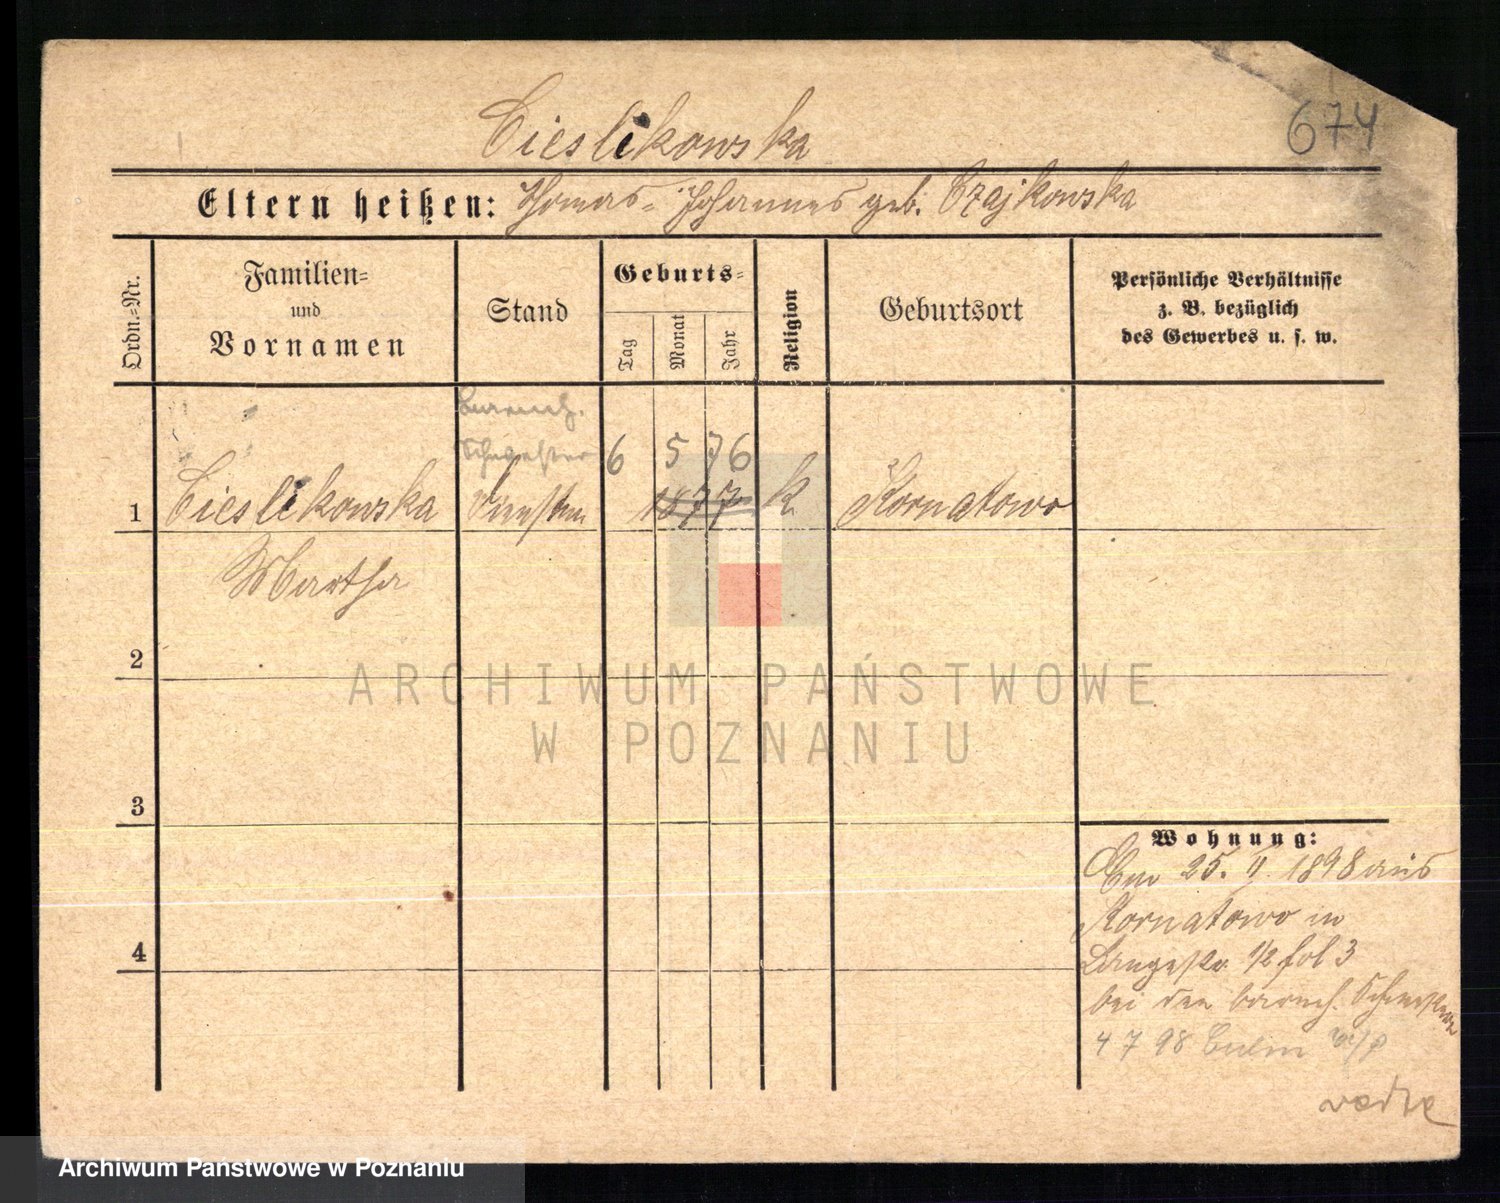 674
Cieslikowska
Eltern heißen: Thomas - Johannes geb. Czajkowska
Ordn.=Nr.
Familien=
und
Vornamen
Stand
Geburts=
Tag
Monat
Jahr
Religion
Geburtsort
Persönliche Verhältnisse
z. B. bezüglich
des Gewerbes u. s. w.
barmh.
Schwester
6 5 76
1 Cieslikowska 1877 K Kornatowo
Martha
2
3
4
Wohnung:
25. 1898 aus
Kornatowo in
Langestr. 1/2 fol 3
bei den barmh. Schwestern
4 7 98 Culm W/p
ARCHIWUM PAŃSTWOWE
W POZNANIU
Archiwum Państwowe w Poznaniu